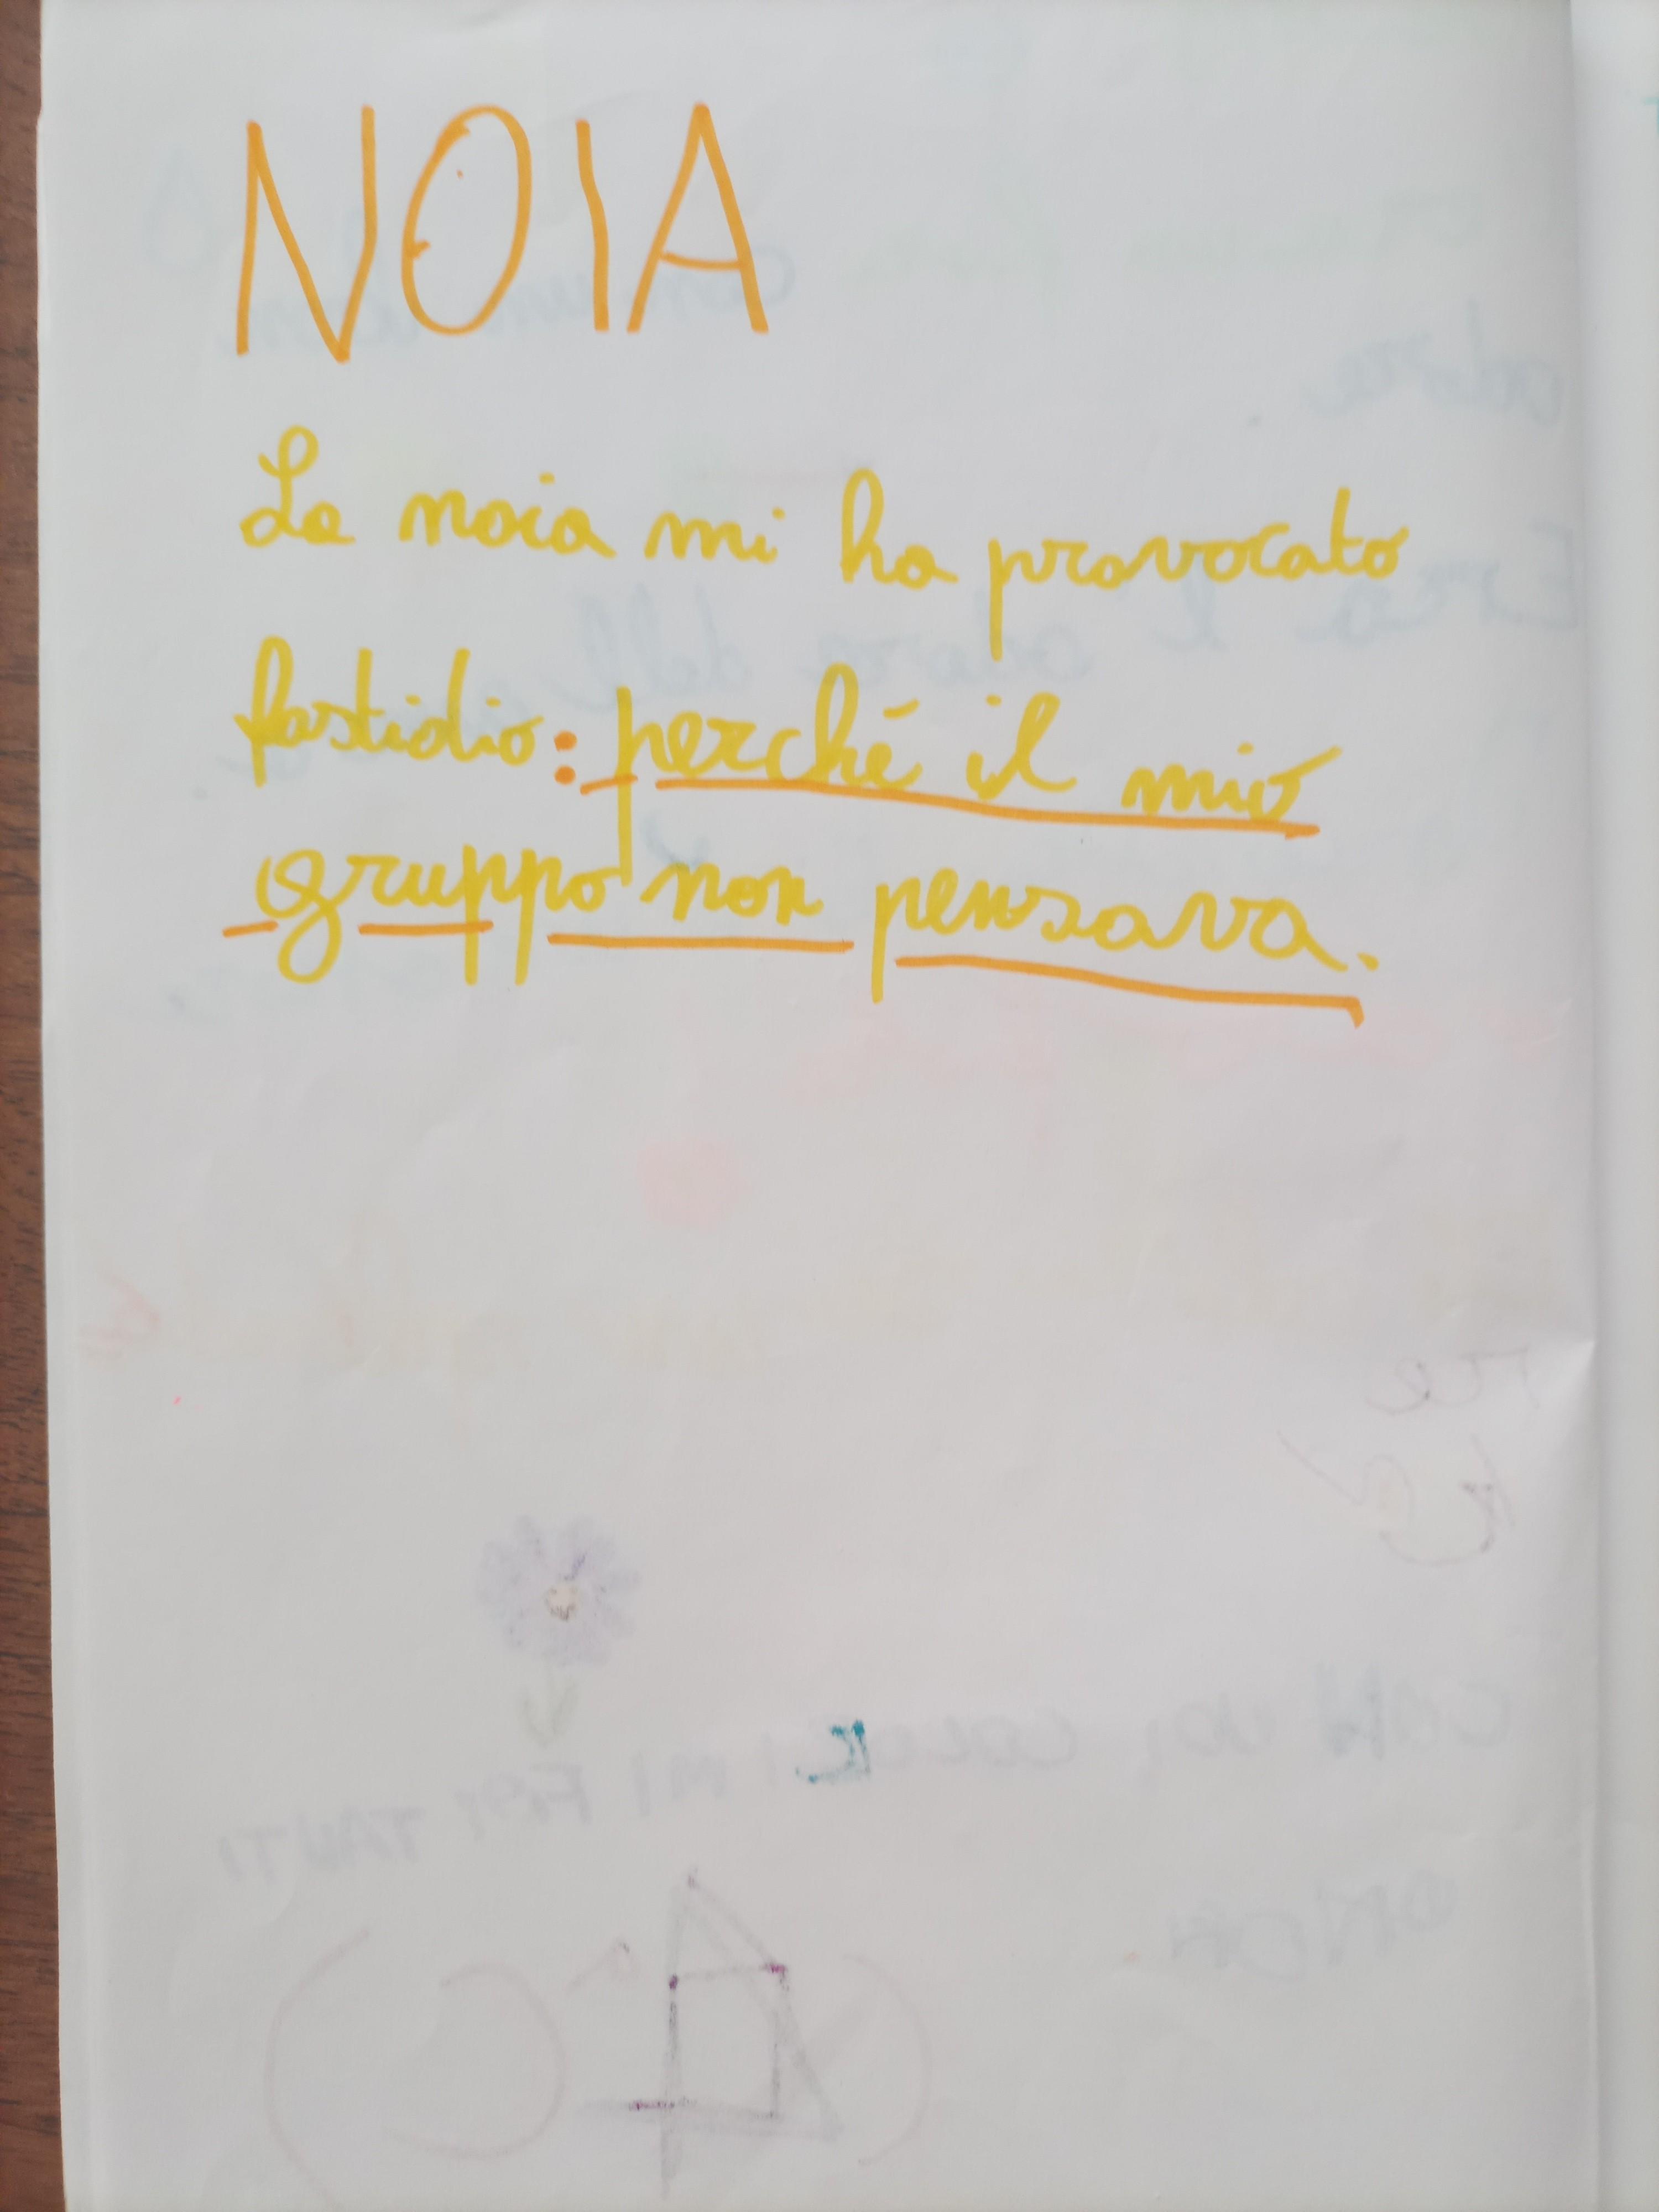 NOIA
La noia mi ha provocato
fastidio: perché il mio
gruppo non pensava.